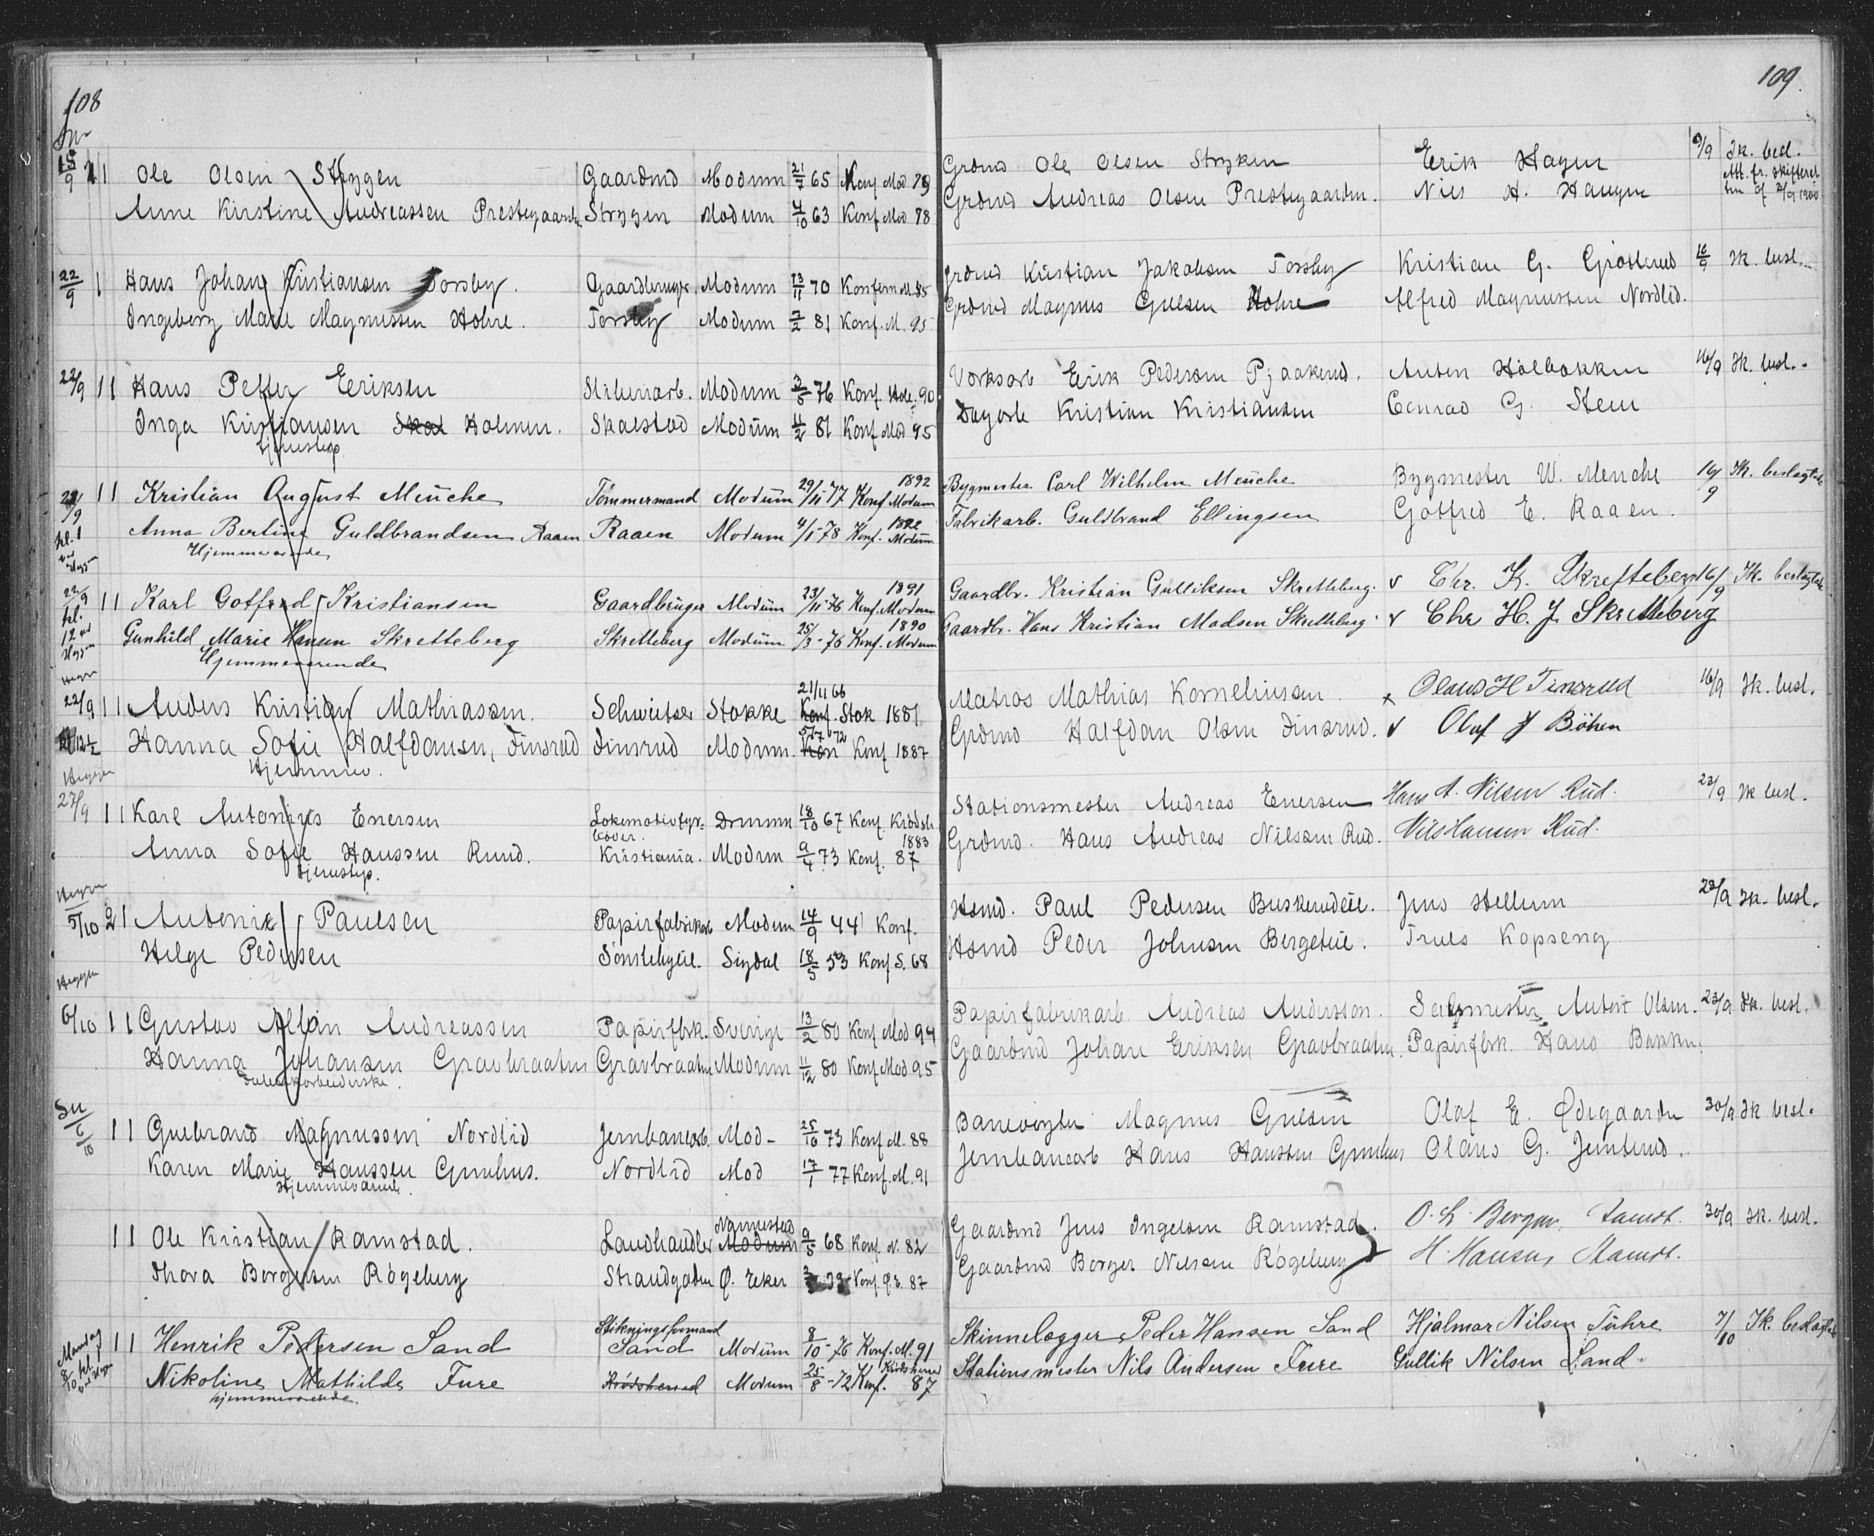 108
15/9 1 1 Ole Olsen Strygen Gaardmd Modum 21/7 65 Konf Mod 79
Anne Kirstine Andreassen Prestegaarden Strygen Modum 4/10 63 Konf Mod 78
22/9 1 Hans Johan Kristiansen Torsby. Gaardbruger Modum 13/11 70 Konferm M. 85
Ingeborg Marie Magnussen Hohre. Torsby Modum 7/2 81 Konf. M. 95
22/9 1 1 Hans Petter Eriksen Sliberiarb. Modum 3/5 76 Konf. Hole. 90
Inga Kristiansen Holmen. Skalstad Modum 11/2 81 Konf Mod 95
Tjenestep
22/9 1 1 Kristian August Menche Tömmermand Modum 29/11 77 Konf Modum 1892
kl. 1 Anna Bertine Guldbrandsen Raaen Raaen Modum 4/1-78 Konf. Modum 1892
Hjemmeværende
22/9 kl. 12 ved Heggen 1 1 Karl Gotfred Kristiansen Gaardbruger Modum 23/11-76 Konf. Modum 1891
Gunhild Marie Hansen Skretteberg Skretteberg Modum 25/3-76 Konf. Modum 1890
Hjemmeværende
Heggen
22/9 1 1 Anders Kristian Mathiassen. Schweitser Stokke 21/11 66 Konf. Stok 1881
12½ Hanna Sofie Halfdansen, Finsrud Finsrud Modum. 5/7 72 Konf 1887
Hjemmev.
Heggen
27/9 1 1 Karl Antonius Enersen Lokomotivfyrbøder. Drammen 18/10 67 Konf. Krødsh. 1883
Anna Sofie Hanssen Ruud. Kristiania. Modum 9/4 73 Konf. 87
Tjenstep.
Heggen
5/10 2 1 Antonie Paulsen Papirfabrikarb Modum 14/9 44 Konf.
Helge Pedersen Sønstebyeie. Sigdal 18/5 53 Konf S. 68
Heggen
6/10 1 1 Gustav Allan Andreassen Papirfbrk. Sverige 13/2 80 Konf Mod 94
Hanna Johansen Gravbraaten Gravbraaten Modum 11/12 80 Konf Mod 95
Fabrikarbeiderske.
Sn 6/10 1 1 Gulbrand Magnussen Nordlid Jernbanearb. Mod- 25/10 73 Konf M. 88
Karen Marie Hanssen Grønhus. Nordlid Mod 17/1 77 Konf. M. 91
Hjemmevænde.
1 1 Ole Kristian Ramstad. Landhandler Nannestad Modum 9/5 68 Konf. N. 82
Thora Borgersen Røgeberg Strandgaden Ø. Eker 73 Konf. Ø.E. 87
Mandag 8/10 kl. 1 ved Heggen 1 1 Henrik Pedersen Sand Stikningsformand Sand Modum 8/10-76 Konf. M. 91
Nikoline Mathilde Fure Krødsherred Modum 25/8-72 Konf. Krødsherred 87
hjemmeværende.
109.
Grdmd Ole Olsen Stryken Erik Hagen 9/9 Ik. besl.
Grdmd Andreas Olsen Prestegaarden. Nils A. Haugen Att. fr. skifteretten af 3/9 1900
Grdmd Kristian Jakobsen Torsby Kristian G. Grøslerud 16/9 Ik. besl.
Grdmd Magnus Gulsen Hohre Alfred Magnussen Nordlid.
Verksarb Erik Pedersen Pjaakerud. Anton Holbakken 16/9 Ik. besl.
Dagarb Kristian Kristiansen Conrad G. Steen
Bygmester Carl Wilhelm Menche Bygmester W. Menche 16/9 Ik. beslægtede
Fabrikarb. Guldbrand Ellingsen Gotfred E. Raaen.
Gaardbr. Kristian Gulliksen Skretteberg. v Chr. K. Skretteberg 16/9 Ik. beslægtede
Gaardbr. Hans Kristian Madsen Skretteberg. v Chr H. J Skretteberg
Matros Mathias Korneliussen x Olaus H Finsrud 16/9 Ik. besl.
Grdmd Halfdan Olsen Finsrud. v Olaf J Böhen
Stationsmester Andreas Enersen Hans A. Nilsen Rud. 23/9 Ik besl.
Grdmd. Hans Andreas Nilsen Rud. Nils Hansen Rud.
Hsmd. Paul Pedersen Buskerudeie. Jens Hellum 23/9 Ik. besl.
Hsmd Peder Johnsen Bergeteie. Truls Kopseng
Papirfabrikarb. Andreas Andersson. Salmester Anton Olsen. 23/9 Ik. besl.
Gaardmd Johan Eriksen Gravbraaten. Papirfbrk. Hans Bakken.
Banevogter Magnus Gulsen Olaf E. Ødegaarden 30/9 Ik besl.
Jernbanearb Hans Hansen Grønhus Olaus G. Jenserud.
Gaardmd Jens Ingelsen Ramstad. O. L. Bergan, Samdt. 30/9 Ik. besl.
Gaardmd Borger Nilsen Røgeberg H. Hansen, Samdt.
Skinnelægger Peder Hansen Sand Hjalmar Nilsen Fuhre 7/10 Ik. beslægtede
Stationsmester Nils Andersen Fure Gullik Nilsen Sand.